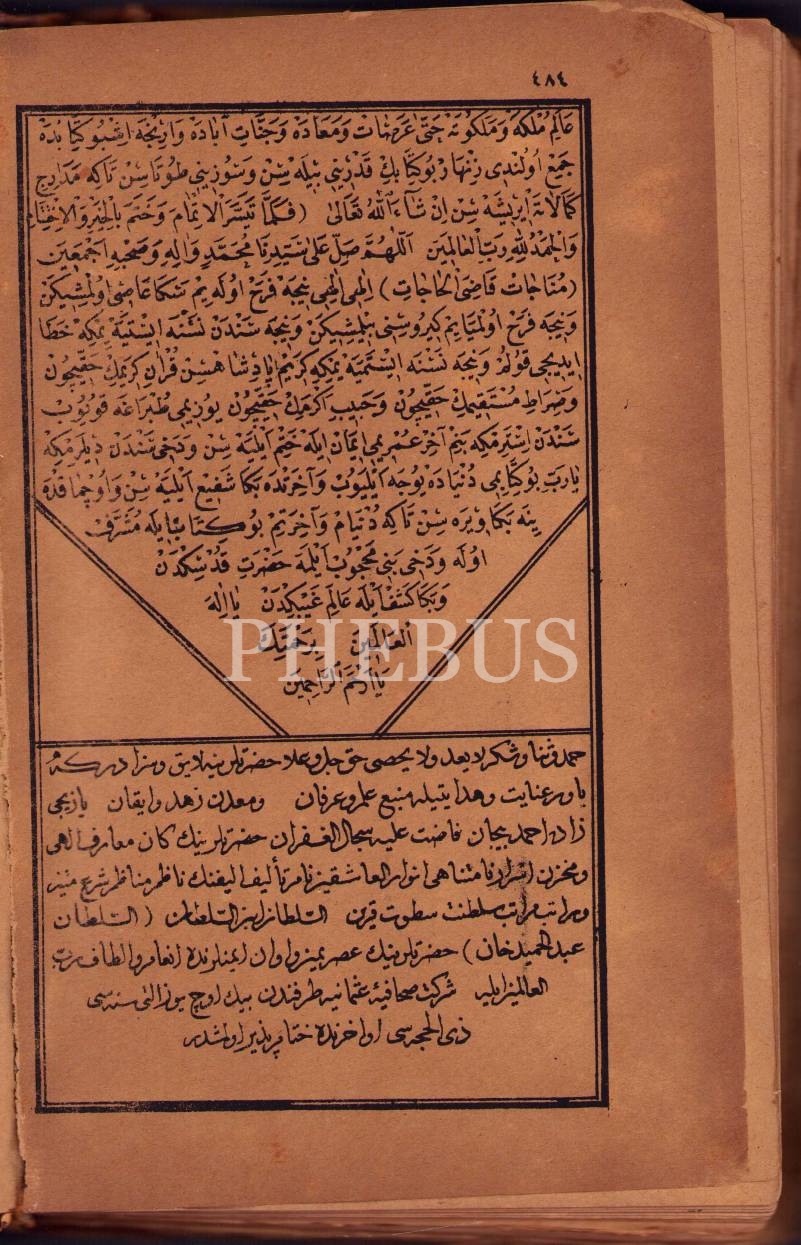 ٤٨٤
عَالَمِ مُلْكَهْ وَمَلَكُوتَهْ حَتّٰى عَرَصَاتْ وَمَعَادَهْ وَجَنَّاتِ اٰبَادَهْ وَارِنْجَهْ اِشْبُو كِتَابْدَهْ
جَمْعْ اُولُنْدِى زِنْهَارْ بُو كِتَابِكْ قَدْرِينِى بِيلَهْ سِنْ وَسُوزِينِى طُوتَاسِنْ تَاكِهْ مَدَارِجِ
كَمَالَاتَهْ اِيرِيشَهْ سِنْ اِنْ شَآءَ اللّٰهُ تَعَالٰى (فَلَمَّا تَيَسَّرَ الْاِتْمَامَ وَخَتَمَ بِالْخَيْرِ وَالْاِخْتِتَامِ
وَالْحَمْدُ لِلّٰهِ رَبِّ الْعَالَمِينَ اَللّٰهُمَّ صَلِّ عَلٰى سَيِّدِنَا مُحَمَّدٍ وَاٰلِهِ وَصَحْبِهِ اَجْمَعِينَ
(مُنَاجَاتْ قَاضِىَ الْحَاجَاتِ) اِلٰهِى اِلٰهِى نِيجَهْ فَرَحْ اُولَهْ يِمْ سَكَا عَاصِى اُولْمِيشِيكَنْ
وَنِيجَهْ فَرَحْ اُولْمَيَايِمْ كِيرُو سِنِى بِيلِيشِيكَنْ وَنِيجَهْ سَنْدَنْ نَسْنَهْ اِيسْتِيَهْ يِمْكِهْ خَطَا
اِيدِيجِى قُولَمْ وَنِيجَهْ نَسْنَهْ اِيسْتَمِيَهْ يِمْكِهْ كَرِيمْ پَادِشَاهْسِنْ قُرْاٰنِ كَرِيمِكْ حَقِّيچُونْ
وَصِرَاطِ مُسْتَقِيمِكْ حَقِّيچُونْ وَحَبِيبِ اَكْرَمِكْ حَقِّيچُونْ يُوزِيمِى طُپْرَاغَهْ قُويُوبْ
سَنْدَنْ اِسْتَرْمِكِهْ بَنِمْ اٰخِرْ عُمْرِيمِى اِيمَانْ اِيلَهْ خَتْمْ اَيْلِيَهْ سِنْ وَدَخِى سَنْدَنْ دِيلَرْمِكِهْ
يَارَبِّ بُو كِتَابِيمِى دُنْيَادَهْ يُوجَهْ اَيْلِيُوبْ وَاٰخِرَتْدَهْ بَكَا شَفِيعْ اَيْلِيَهْ سِنْ وَاُوچْمَاقْدَهْ
يِنَهْ بَكَا وِيرَهْ سِنْ تَاكِهْ دُنْيَامْ وَاٰخِرَتِمْ بُو كِتَابْ اِيلَهْ مُشَرَّفْ
اُولَهْ وَدَخِى بَنِى مَحْجُوبْ اَيْلَمَهْ حَضْرَتِ قُدْسِكْدَنْ
وَبَكَا كَشْفْ اَيْلَهْ عَالَمِ غَيْبِكْدَنْ يَا اِلٰهَ
الْعَالَمِينَ بِرَحْمَتِكَ
يَا اَرْحَمَ الرَّاحِمِينَ
حمد و ثنا و شكر لا يعد ولا يحصى حق جل و علا حضرتلرينه لايق و سزادركه
ياور عنايت و هدايتيله منبع علم و عرفان ومعدن زهد و ايقان يازيجى
زاده احمد بيجان فاضت عليه سجال الغفران حضرتلرينك كان معارف الهى
و مخزن اسرار نامتناهى انوار العاشقين نام تأليف اليفنك ناظم مناظم شرع منير
و مراتب سلطنت سطوت قرين السلطان ابن السلطان (السلطان
عبد الحميد خان) حضرتلرينك عصر يميز و اوان ايمنلرنده انعام و الطاف رب
العالمين ايله شركت صحافيۀ عثمانيه طرفندن بيك اوچ يوز التى سنه سى
ذى الحجه سى اواخرنده ختامپذير اولمشدر